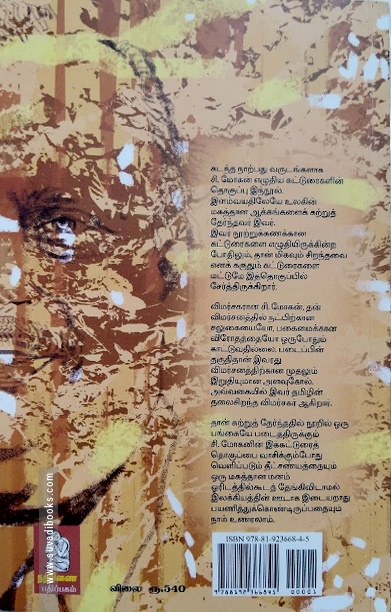 கடந்த நாற்பது வருடங்களாக
சி. மோகன் எழுதிய கட்டுரைகளின்
தொகுப்பு இந்நூல்.
இளம்வயதிலேயே உலகின்
மகத்தான ஆக்கங்களைக் கற்றுத்
தேர்ந்தவர் இவர்.
இவர் நூற்றுக்கணக்கான
கட்டுரைகளை எழுதியிருக்கின்ற
போதிலும், தான் மிகவும் சிறந்தவை
எனக் கருதும் கட்டுரைகளை
மட்டுமே இத்தொகுப்பில்
சேர்த்திருக்கிறார்.
விமர்சகரான சி. மோகன், தன்
விமர்சனத்தில் நட்பிற்கான
சலுகையையோ, பகைமைக்கான
விரோதத்தையோ ஒருபோதும்
காட்டுவதில்லை. படைப்பின்
தகுதிதான் இவரது
விமர்சனத்திற்கான முதலும்
இறுதியுமான அளவுகோல்.
அவ்வகையில் இவர் தமிழின்
தலைசிறந்த விமர்சகர் ஆகிறார்.
தான் கற்றுத் தேர்ந்ததில் நூறில் ஒரு
பங்கையே படைத்திருக்கும்
சி. மோகனின் இக்கட்டுரைத்
தொகுப்பை வாசிக்கும்போது
வெளிப்படும் தீட்சண்யத்தையும்
ஒரு மகத்தான மனம்
ஓரிடத்தில்கூடத் தேங்கிவிடாமல்
இலக்கியத்தின் ஊடாக இடையறாது
பயணித்துக்கொண்டிருப்பதையும்
நாம் உணரலாம்.
www.suvadibooks.com
நற்றிணை
பதிப்பகம்
விலை ரூ.540
ISBN 978-81-923668-4-5
9 788192 366845
00001